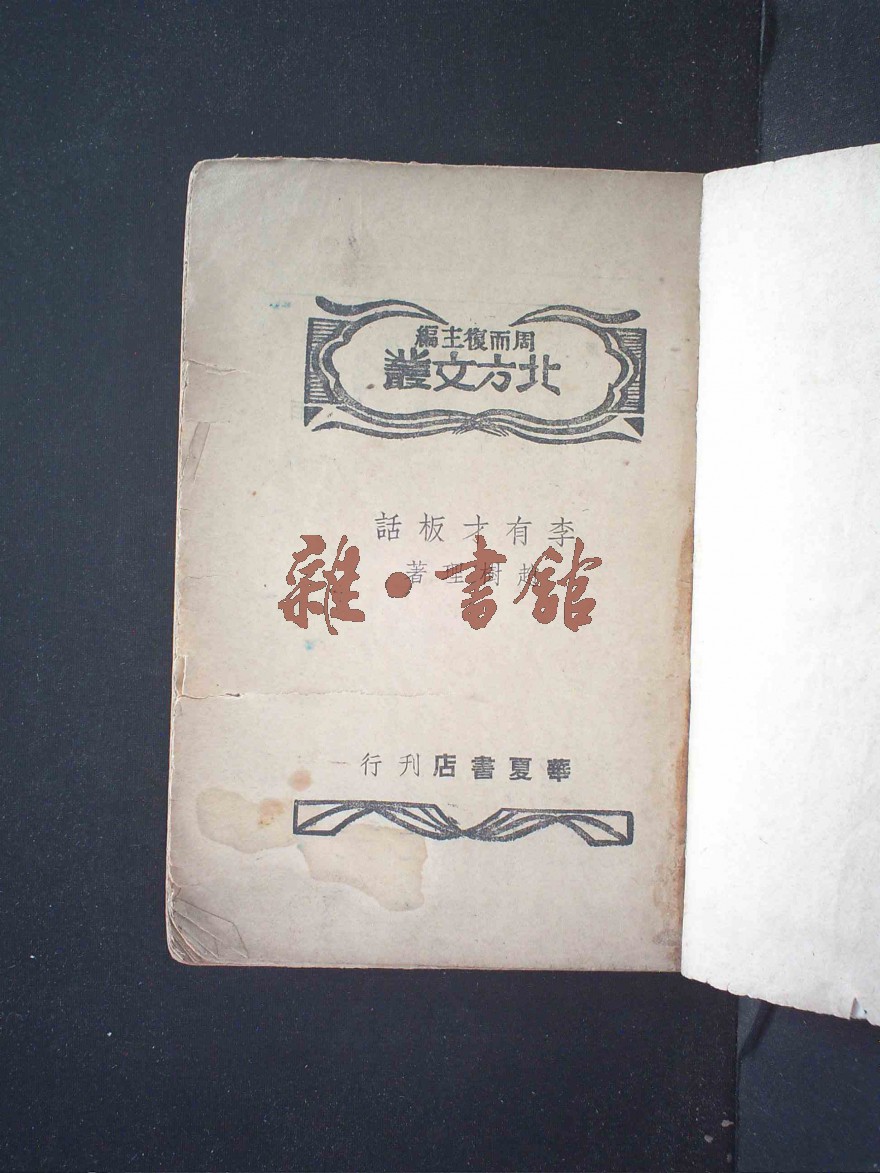 周而復主編
北方文叢
李有才板話
趙樹理著
雜·書館
華夏書店刊行